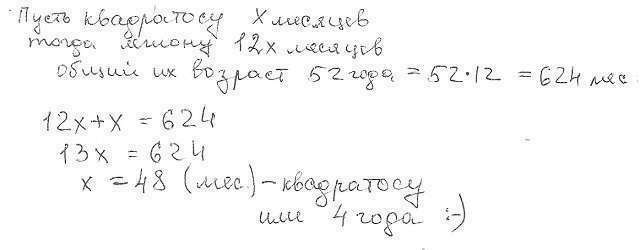 Пусть квадратосу x месяцев
тогда 12x месяцев
общий их возраст 52 года = 52·12 = 624 мес.
12x+x = 624
13x = 624
x = 48 (мес.) – квадратосу
или 4 года :-)